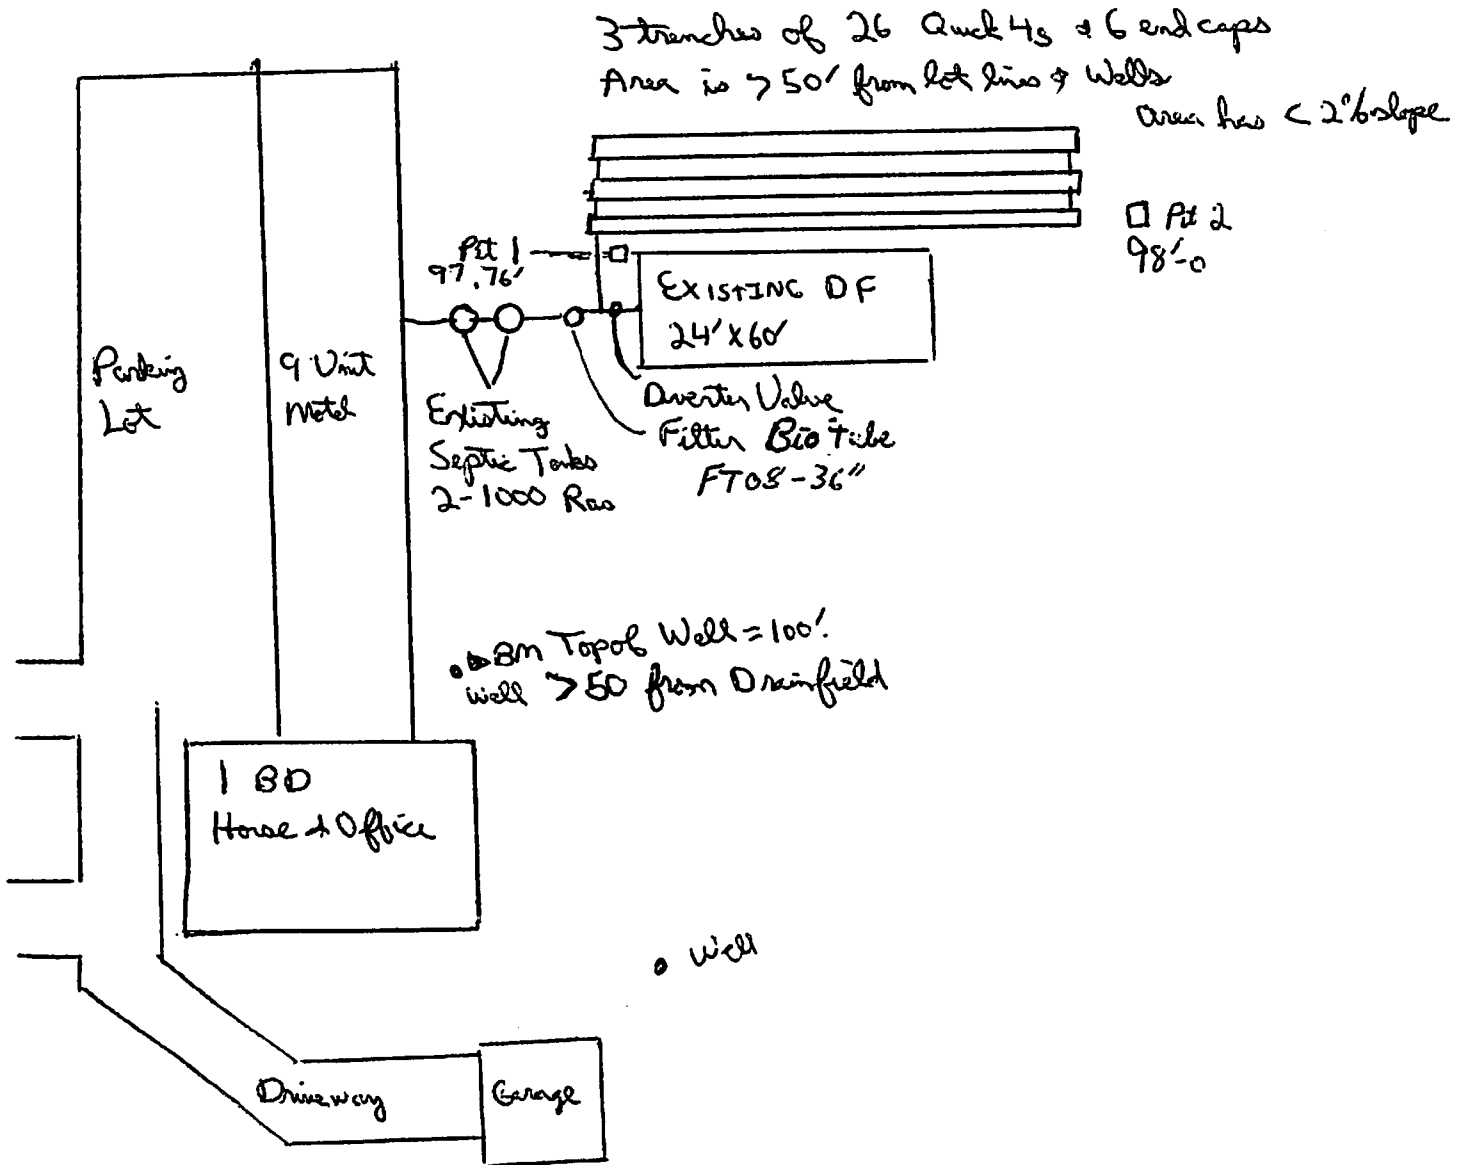 3 trenches of 26 Quick 4s & 6 end caps
Area is > 50' from lot lines & Wells
area has < 2% slope
Pit 2
98'-0
Pit 1
97.76'
EXISTING DF
24'X60'
Parking
Lot
9 Unit
Motel
Existing
Septic Tanks
2-1000 Ras
Diverter Valve
Filter Bio Tube
FT08-36"
BM Top of Well = 100'.
well > 50 from Drainfield
1 BD
House & Office
Well
Driveway
Garage